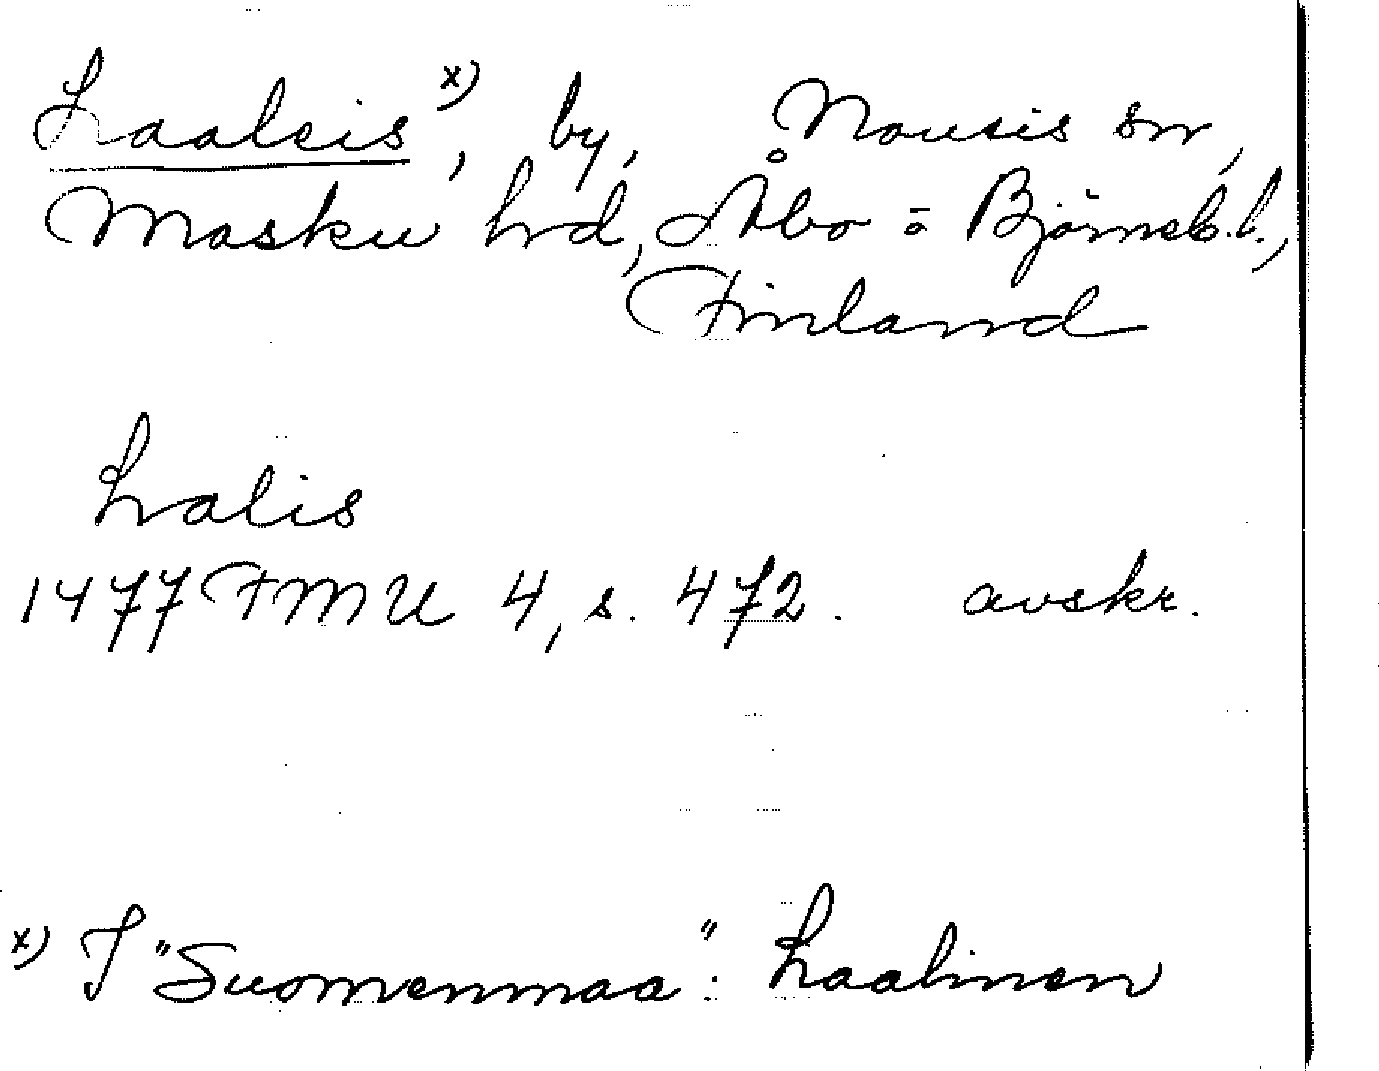 Laaleis x), by, Nousis sn,
Masku hrd, Åbo o Björneb. l.,
Finland
Lalis
1477 FMU 4, s. 472. avskr.
x) I "Suomenmaa": Laalinen